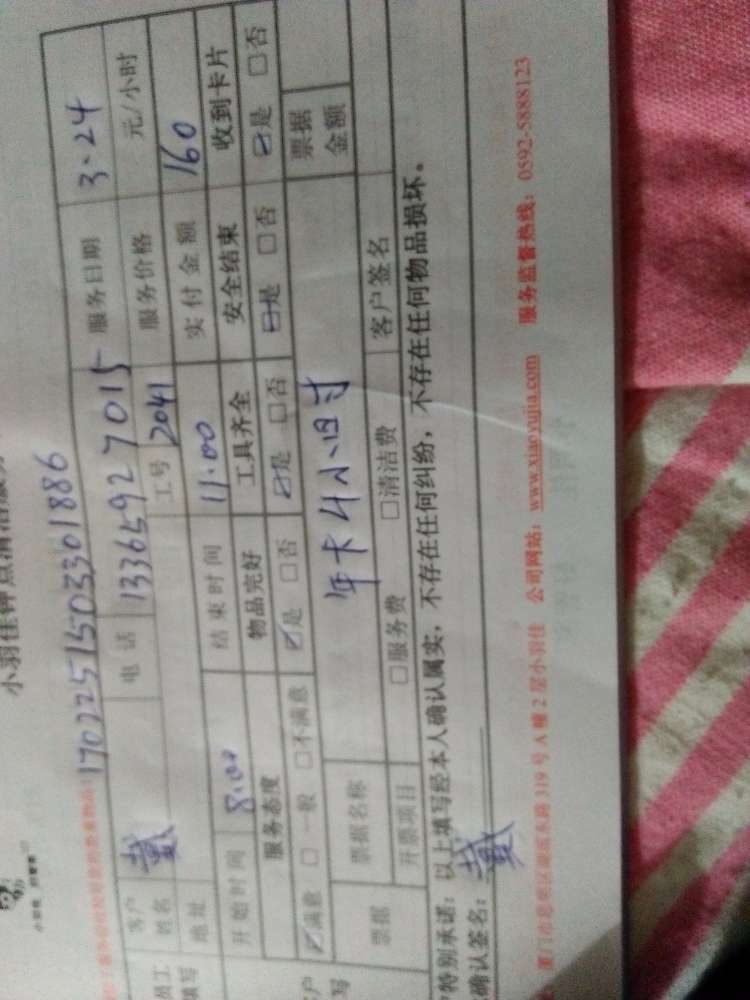 小羽佳钟点清洁服务
小羽佳
1702251503301886
员工填写 客户姓名 戴 电话 13365927015 服务日期 3.24
地址 工号 2041 服务价格 元/小时
开始时间 8:00 结束时间 11:00 实付金额 160
服务态度 物品完好 工具齐全 安全结束 收到卡片
☑满意 □一般 □不满意 ☑是 □否 ☑是 □否 ☑是 □否 ☑是 □否
年卡4小时
票据 票据名称 票据金额
开票项目 □服务费 □清洁费 客户签名
特别承诺：以上填写经本人确认属实，不存在任何纠纷，不存在任何物品损坏。
确认签名：戴
319号A幢2层小羽佳 公司网站：www.xiaoyujia.com 服务监督热线：0592-5888123